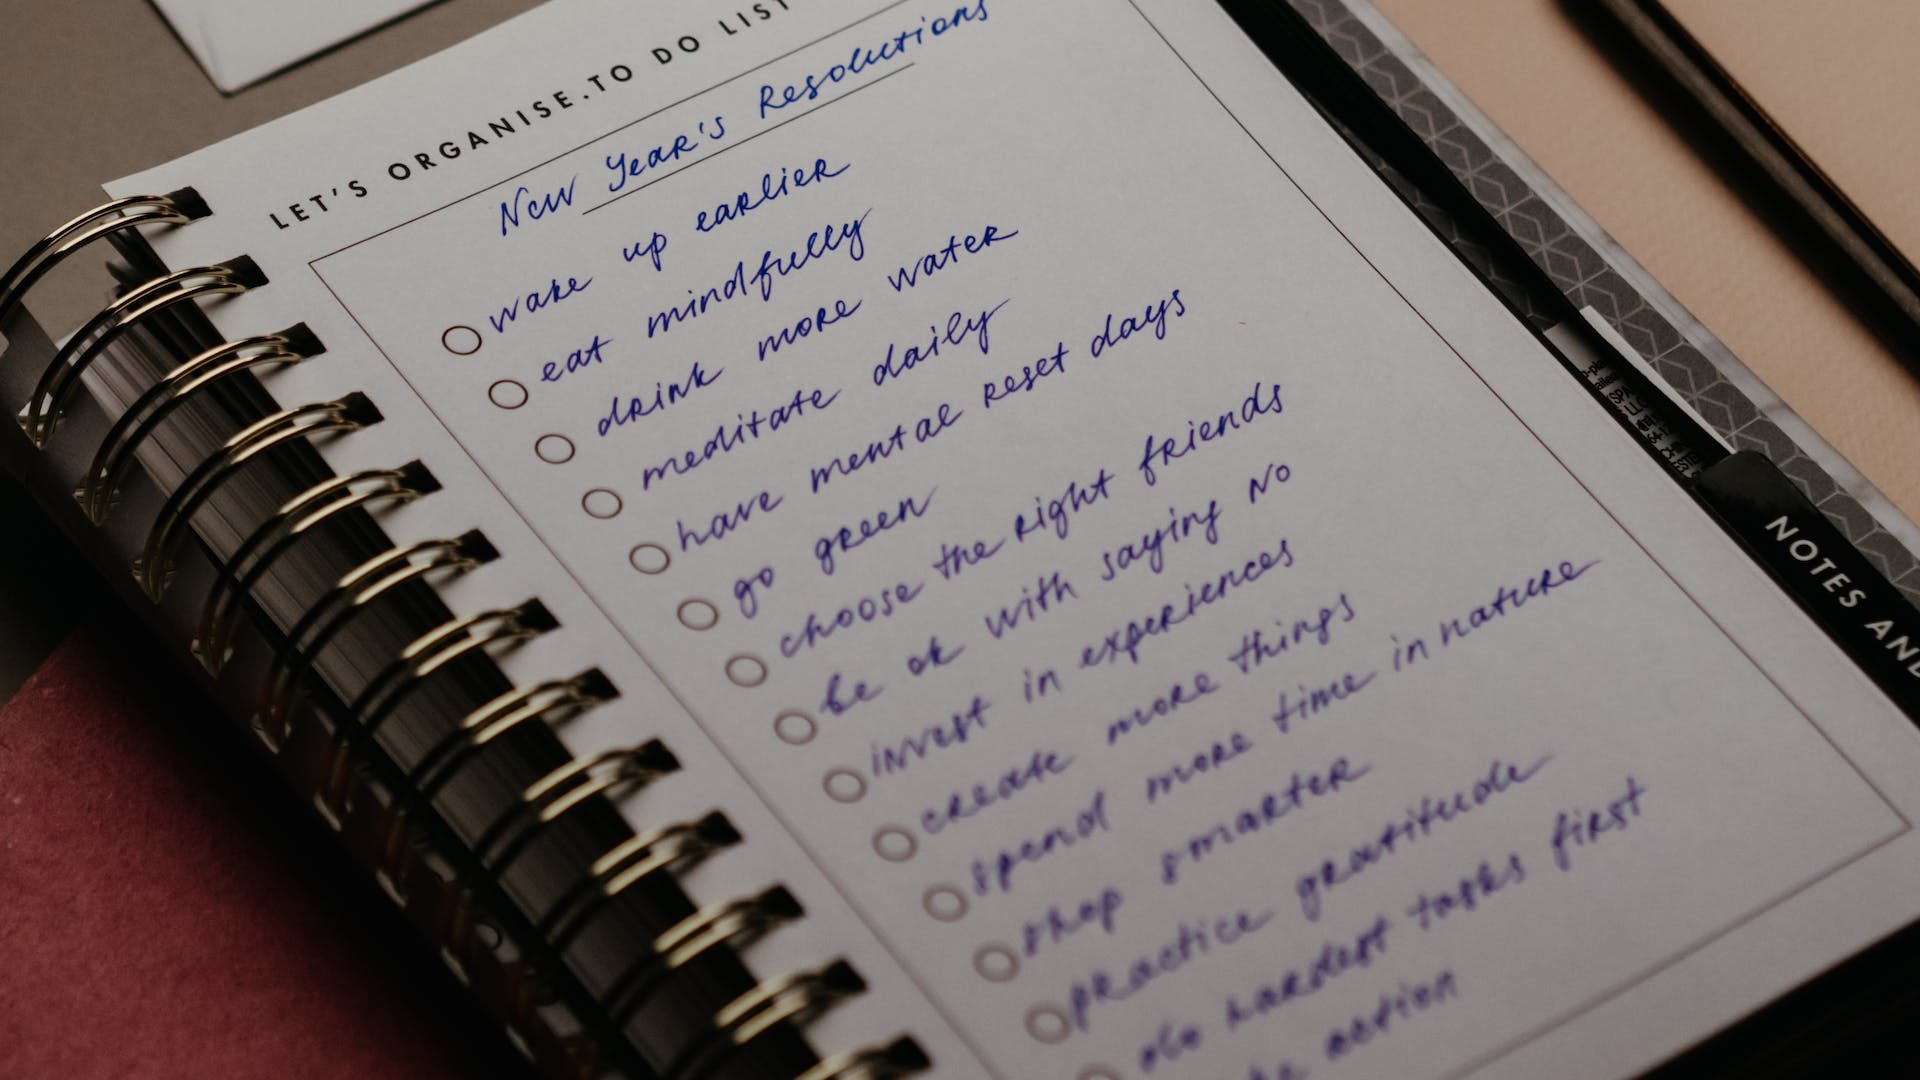 LET'S ORGANISE.TO DO LIST
New Year's Resolutions
wake up earlier
eat mindfully
drink more water
meditate daily
have mental reset days
go green
choose the right friends
be ok with saying NO
invest in experiences
create more things
spend more time in nature
shop smarter
practice gratitude
do hardest tasks first
action
NOTES AND